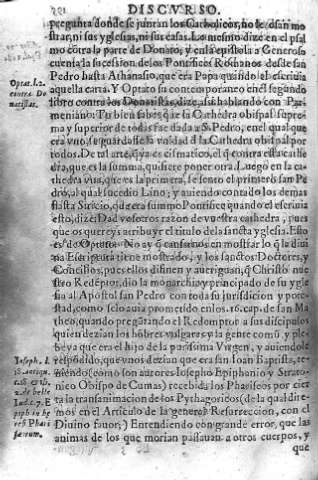 DISCVRSO.
pregunta donde se juntan los Catholicos, no le osan mo
strar, ni sus yglesias, ni sus casas. Lo mesmo dize en el psal
mo contra la parte de Donato, y en la epistola a Generoso
cuenta la sucession de los Pontifices Romanos desde san
Pedro hasta Athanasio, que era Papa quando el escriuia
aquella carta. Y Optato su contemporaneo en el segundo
libro contra los Donatistas, dize, assi hablando con Par
meniano: Tu bien sabes que la Cathedra obispal supre
ma y superior de todas fue dada a S. Pedro, en el qual que
era vno, se guardasse la vnidad de la Cathedra obispal por
todos. De tal arte, que ya es cismatico, el que contra esta cathe
dra, que es la summa, quisiere poner otra. Luego en la ca
thedra vna, que es la primera, se sento el primero san Pe
dro, al qual sucedio Lino; y auiendo contado los demas
hasta Siricio, que era summo Pontifice quando el escriuia
esto, dize: Dad vosotros razon de vuestra cathedra, pues
que os quereys atribuyr el titulo de la sancta yglesia. Esto
es de Optato. No ay que cansarnos en mostrar lo que la diui
na Escriptura tiene mostrado, y los sanctos Doctores, y
Concilios, pues ellos difinen y aueriguan, que Christo nue
stro Redemptor, dio la monarchia y principado de su ygle
sia al Apostol san Pedro con toda su jurisdicion y pote
stad, como se lo auia prometido en el 16. cap. de san Ma
theo, quando preguntando el Redemptor a sus discipulos
quien dezian los hombres vulgares y la gente comun y ple
beya que era el hijo de la purissima Virgen, y auiendole
respondido, que vnos dezian que era san Iuan Baptista, te
niendo (como son autores Iosepho Epiphanio y Strato
nico Obispo de Cumas) recebida los Phariseos por cier
ta la transanimacion de los Pythagoricos (de la qual dire
mos en el Articulo de la general Resurreccion, con el
Diuino fauor;) Entendiendo con grande error, que las
animas de los que morian passauan a otros cuerpos, y
que
Optat. l. 2.
contra Do
natistas.
Ioseph. l.